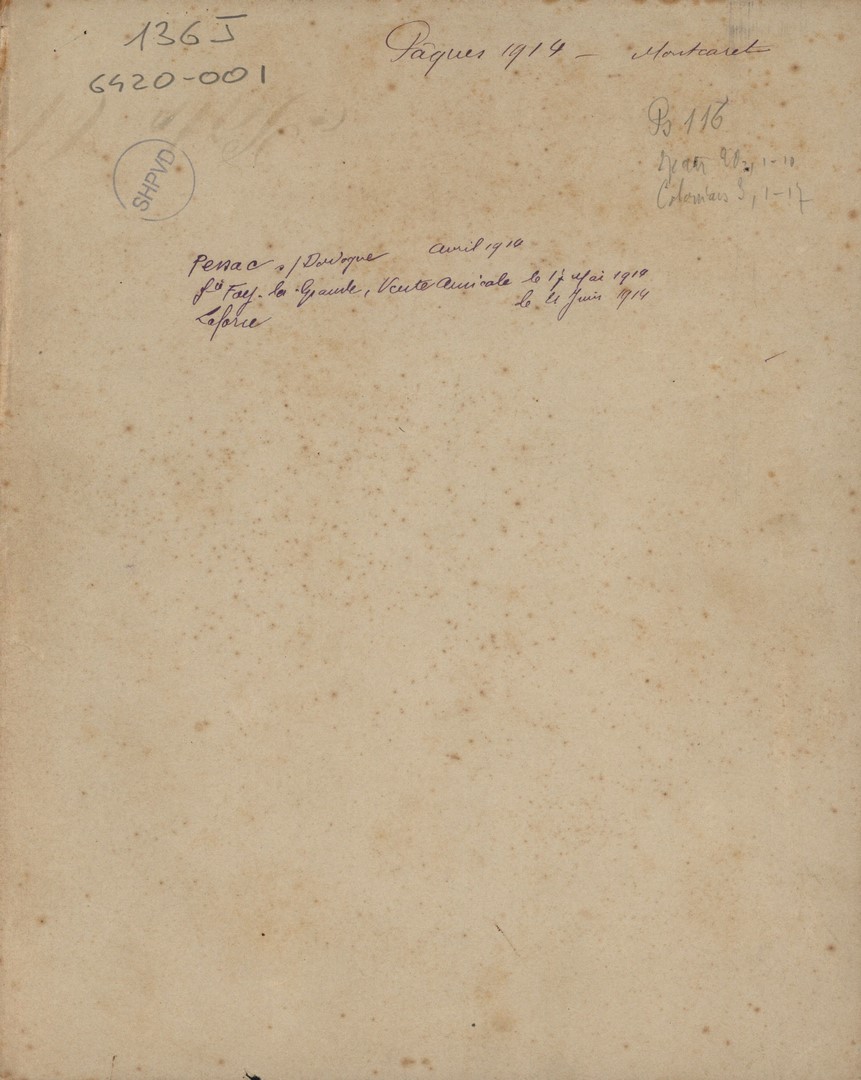 136 J
6420-001
Pâques 1914 — Montcaret
Ps 116
Jean 20, 1-10
Colossiens 3, 1-17
SHPVD
Pessac s/Dordogne Avril 1914
Ste Foy-la-Grande, Vente Amicale le 17 Mai 1914
Laforce le 21 Juin 1914